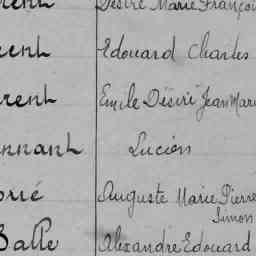 Désiré Marie François
Edouard Charles
Emile Désiré Jean Mari
Lucien
Auguste Marie Pierre
Simon
Balle Alexandre Edouard